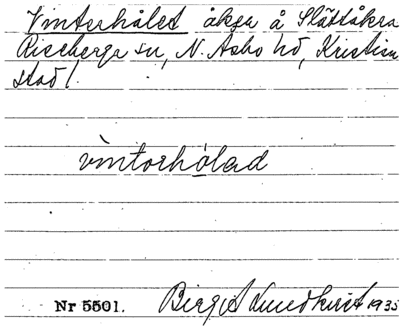 Vinterhålet åker å Slättåkra
Riseberga sn, N. Åsbo hd, Kristian
stad l.
vintorhòlad
Nr 5501. Birgit Lundkvist 1935